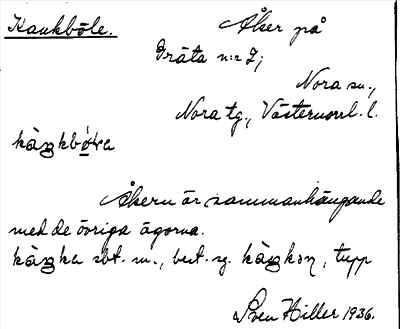 Kankböle. Åker på
Gräta n:r 2;
Nora sn.,
Nora tg., Västernorrl. l.
Åkern är sammanhängande
med de övriga ägorna.
sbt. m., best. sg. , tupp
Sven Hiller 1936.